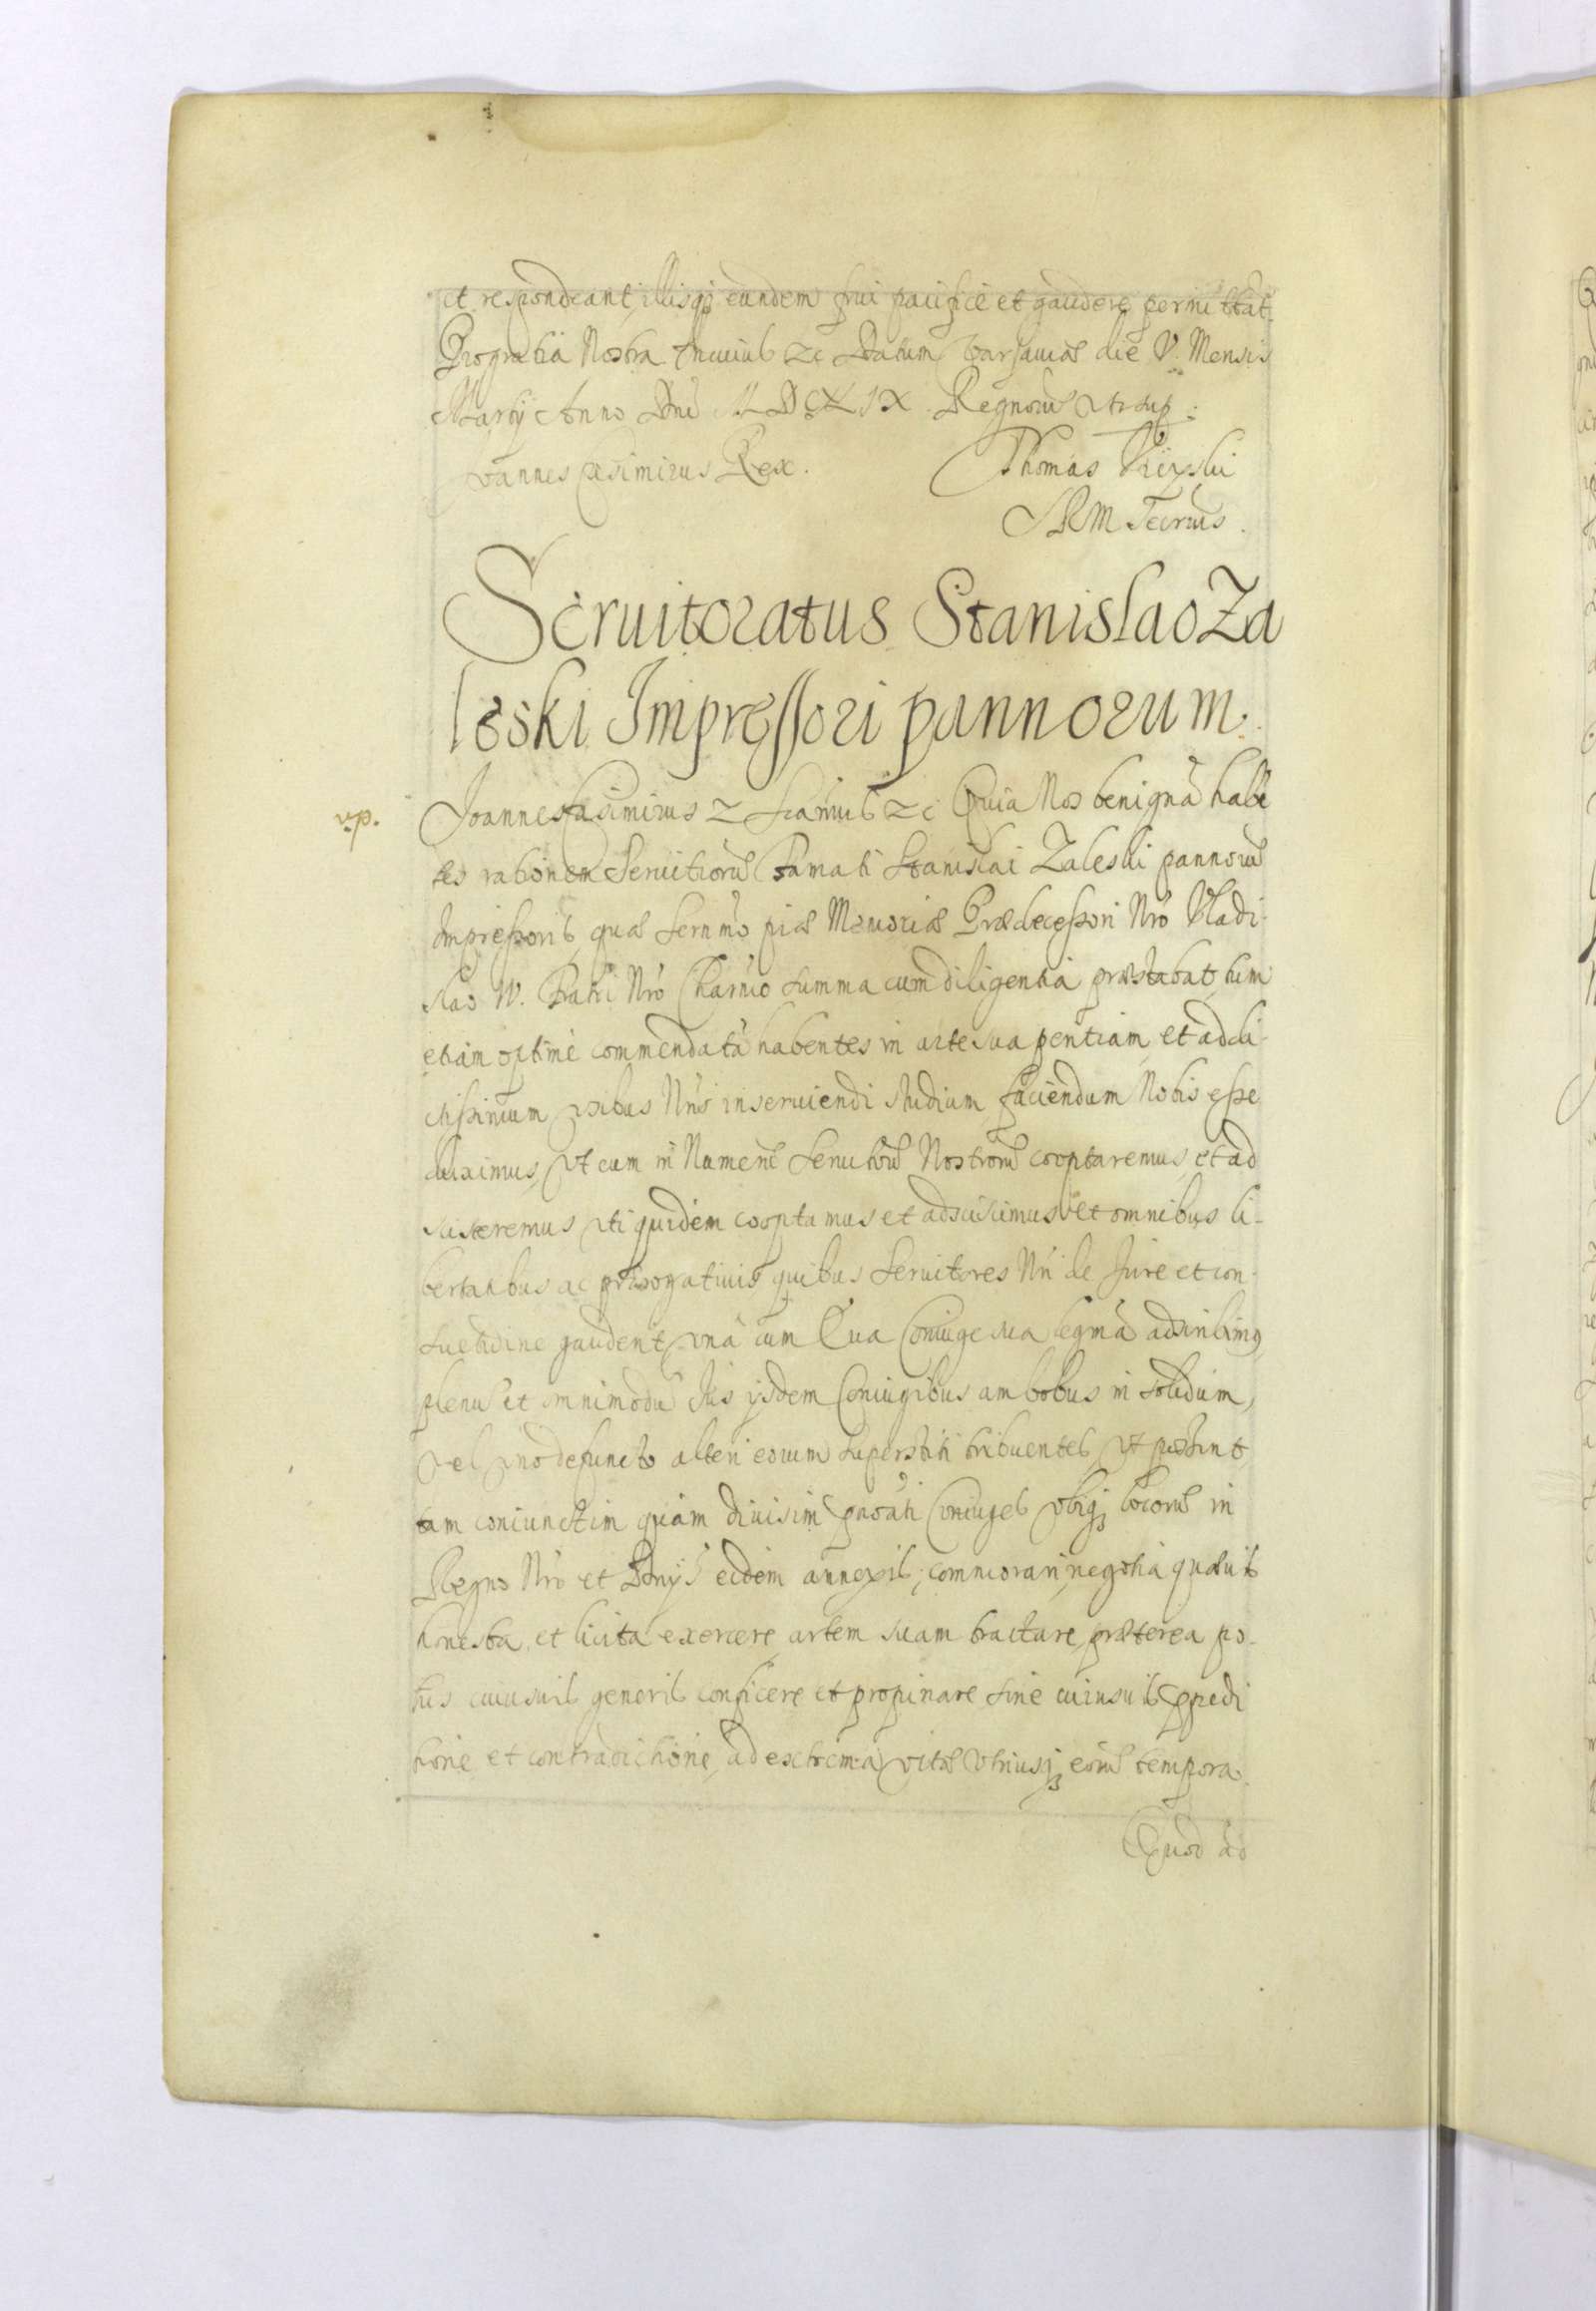 et respondeant, illisq; eundem frui pacifice et gaudere permittat.
Pro gratia Nostra In cuius &c Datum Varsaviae die V. Mensis
Martij Anno Dni MDCXLIX. Regnorũ vt sup:
Ioannes Casimirus Rex. Thomas
SRM Secrius.
Seruitoratus Stanislao Za
leski Impressori pannorum.
v.p.
Joannes Casimirus &c Quia Nos benignã habe
tes rationem Seruitiorũ Famati Stanislai Zaleski pannorũ
Impressoris, quae Sernmo piae Memoriae Praedecessori Nro Vladi-
slao IV. Fratri Nro Charmo summa cum diligentia praestabat, tum
etiam optime commendatã habentes in arte sua pentiam, et addi-
ctissimum vsibus Nris inseruiendi studium, faciendum Nobis esse
duximus, vt eum in Numerũ Seruitorũ Nostrorũ cooptaremus, et ad
scisceremus, vti quidem cooptamus et adsciscimus, et omnibus li-
bertatibus ac praerogatiuis quibus Seruitores Nri de Jure et con-
suetudine gaudent, vnà cum Coniuge sua legma adscribimus,
plenũ et omnimodũ Jus ijsdem Coniugibus ambobus in solidum,
vel vno defuncto alteri eorum superstiti tribuentes, vt possint
tam coniunctim quàm diuisim Coniuges vbiq; locorũ in
Regno Nro et Dnijs eidem annexis, commorari, negotia quaeuis
honesta et licita exercere, artem suam tractare, praeterea po-
tus cuiusuis generis conficere et propinare sine cuiusuis ppedi
tione et contradictione, ad extrema vitae vtriusq; eorũ tempora.
Quod ad